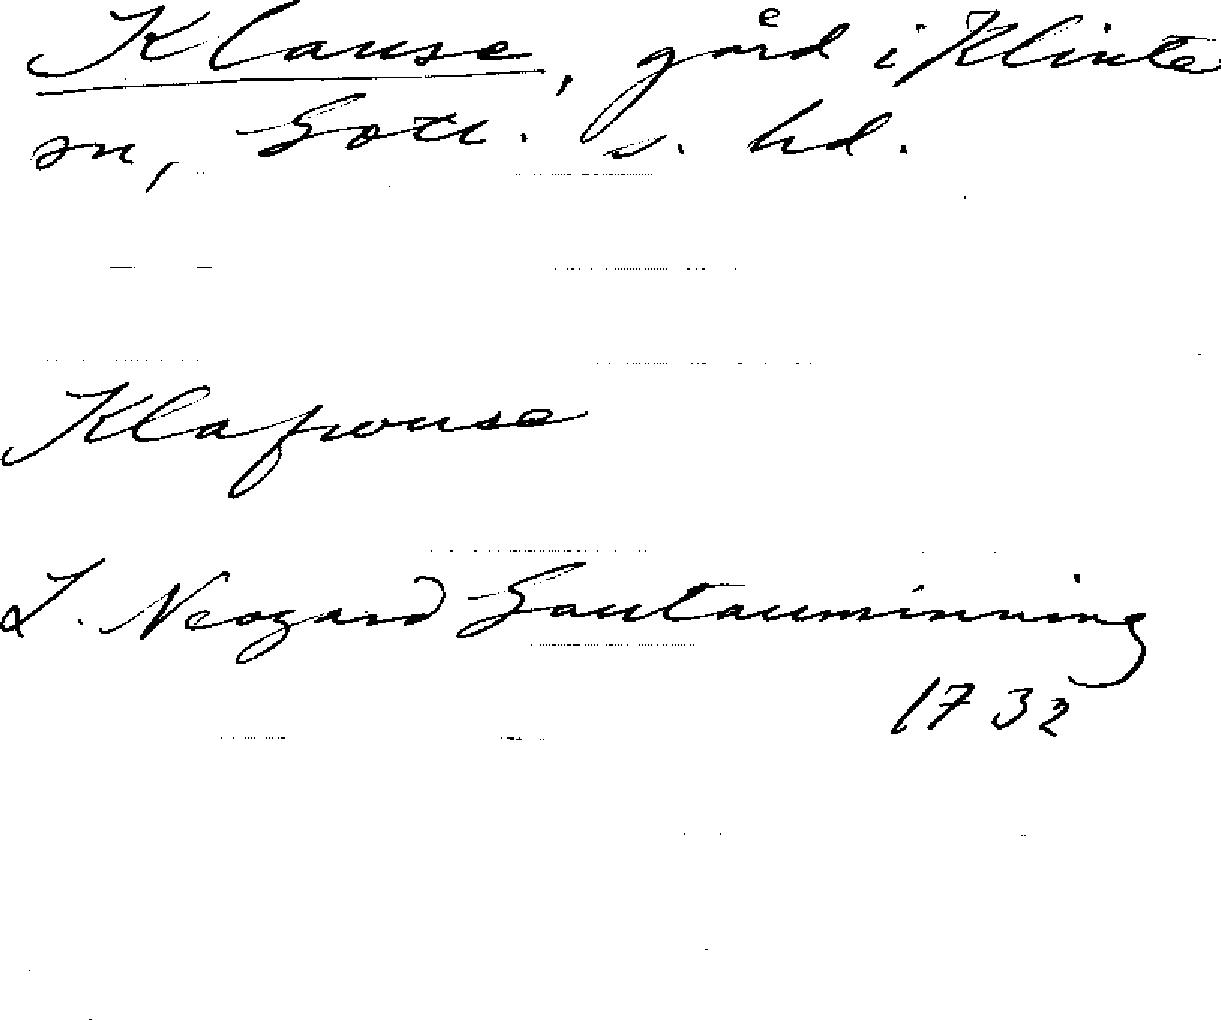 Klause, gård i Klinte
sn, Gotl. s. hd.
Klafwuse
L. Neogard Gautauminning
1732